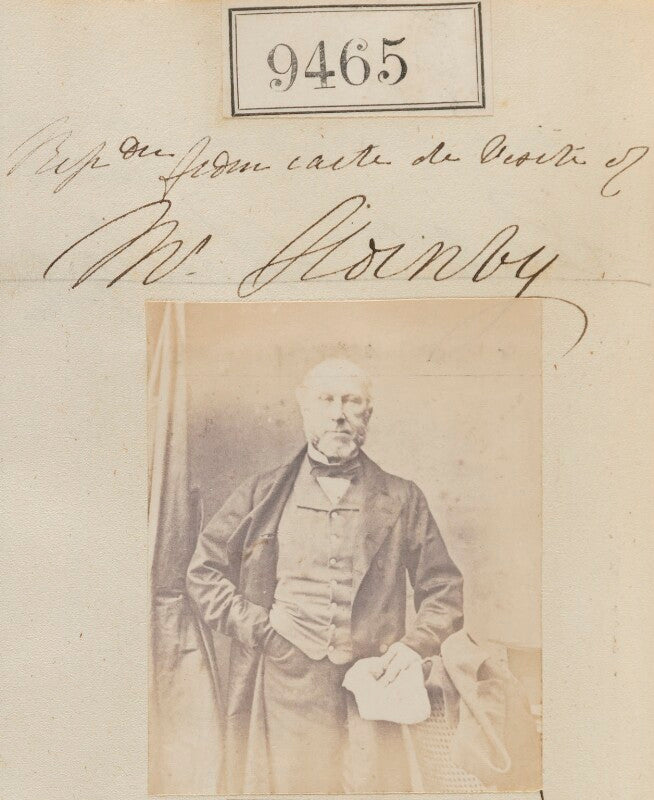 9465
Rep du from carte de Visite of
Mr.